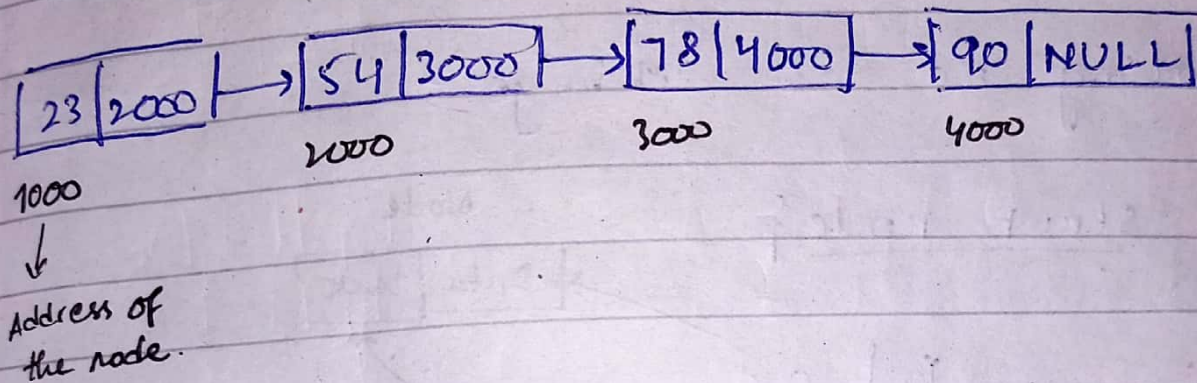 23 2000 54 3000 78 4000 90 NULL
1000 2000 3000 4000
Address of
the node.